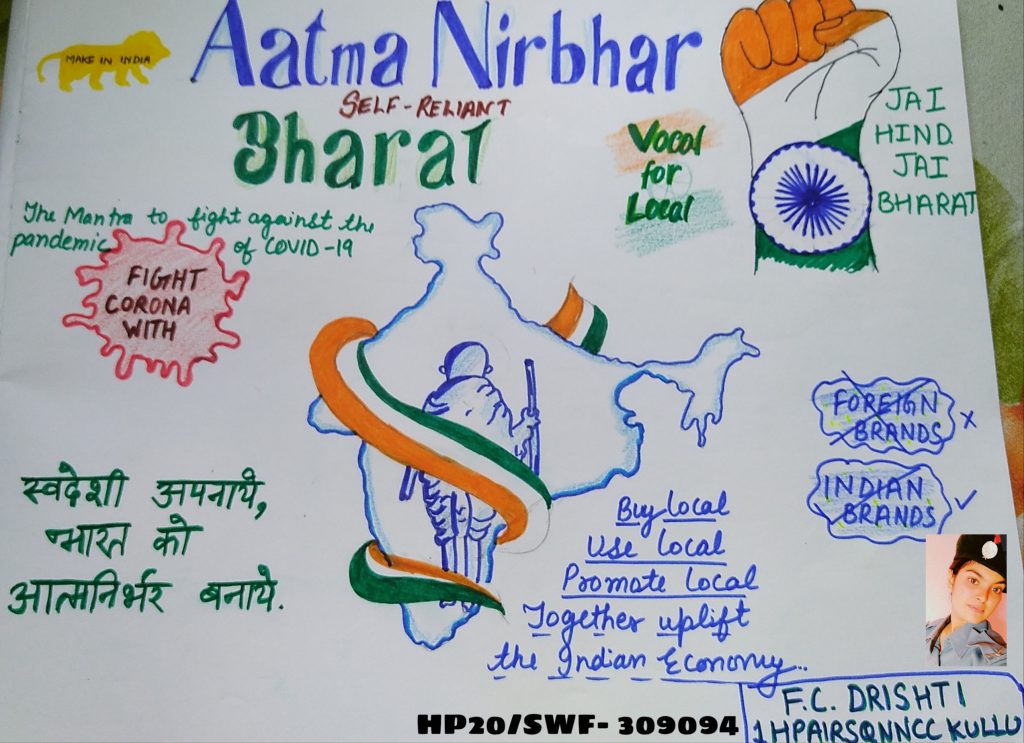 MAKE IN INDIA
Aatma Nirbhar
SELF-RELIANT
Bharat
Vocal
for
Local
JAI
HIND
JAI
BHARAT
The Mantra to fight against the
pandemic of COVID-19
FIGHT
CORONA
WITH
FOREIGN
BRANDS X
INDIAN
BRANDS ✓
स्वदेशी अपनाये,
भारत को
आत्मनिर्भर बनाये.
Buy local
Use local
Promote local
Together uplift
the Indian Economy..
F.C. DRISHTI
1HPAIRSQNNCC KULLU
HP20/SWF- 309094